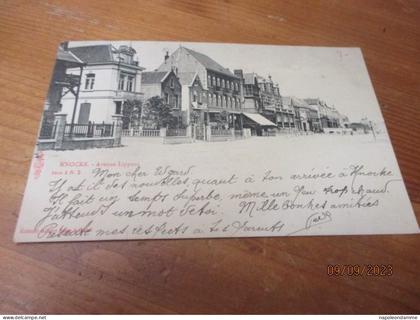 KNOCKE. - Avenue Lippens
Série 2 N. 2
Mon cher Edgard.
Y-a-t-il des nouvelles, quant à ton arrivée à Knocke
Il fait un temps superbe, même un peu trop chaud.
J'attends un mot de toi. Mille bonnes amitiés
Présente mes respects à tes Parents
09/09/2023
www.napoleondemand.com